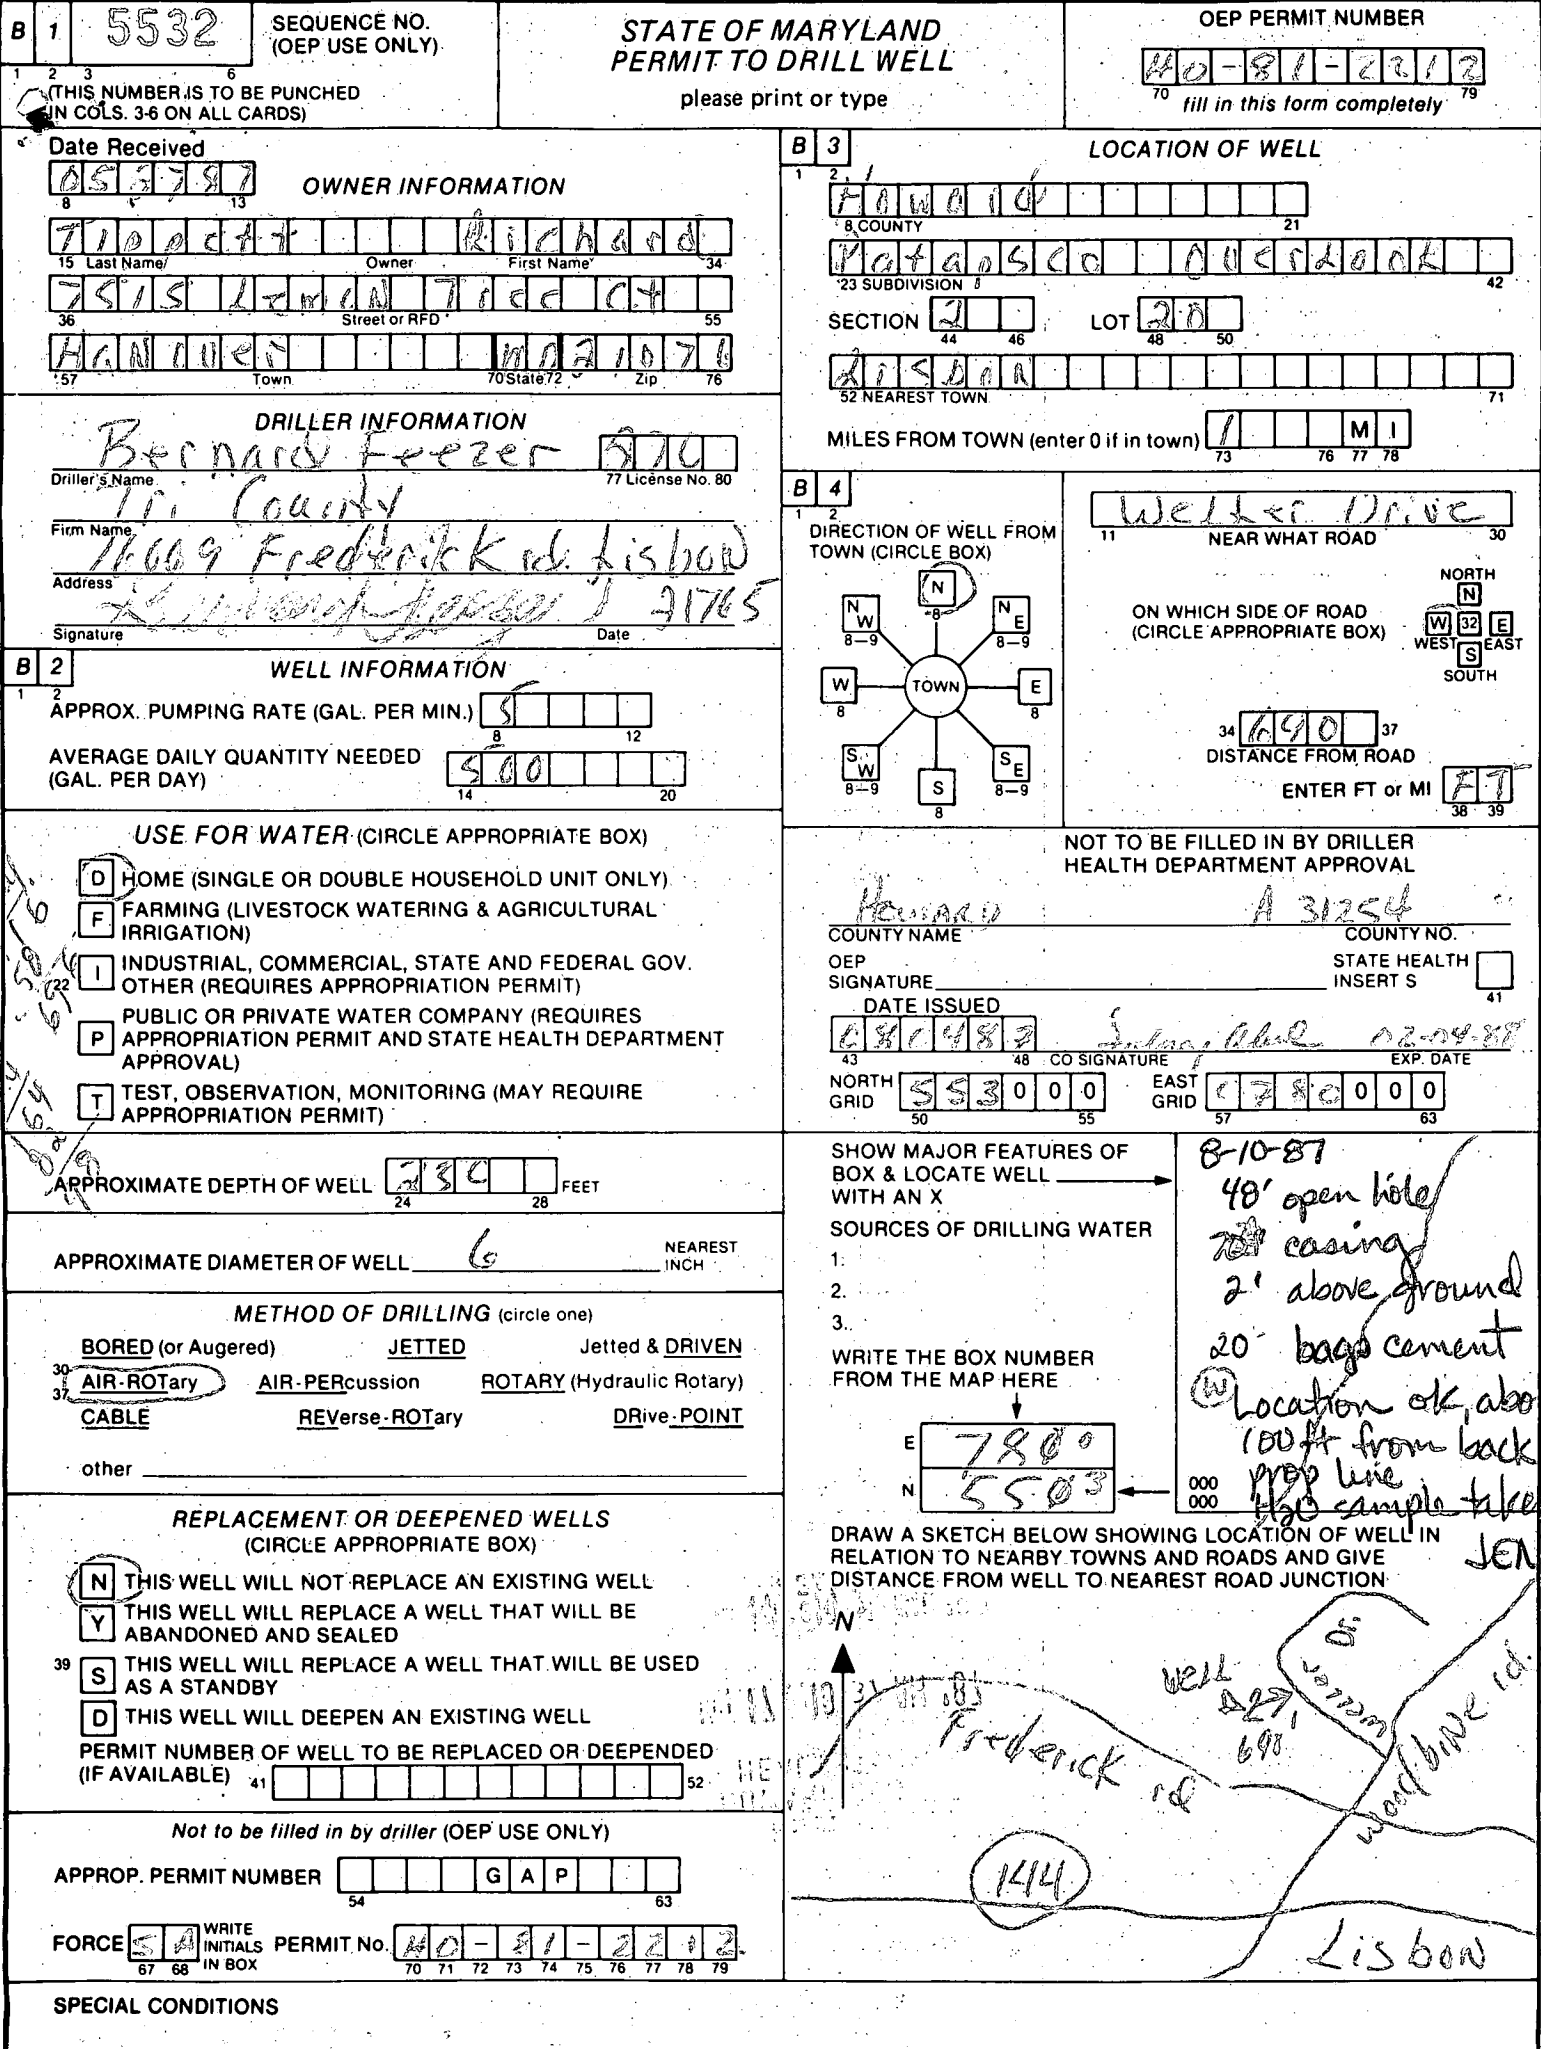 B 1 5532 SEQUENCE NO. (OEP USE ONLY)
1 2 3 6
(THIS NUMBER IS TO BE PUNCHED
IN COLS. 3-6 ON ALL CARDS)
STATE OF MARYLAND
PERMIT TO DRILL WELL
please print or type
OEP PERMIT NUMBER
HO-81-2212
70 79
fill in this form completely
Date Received
8 13
OWNER INFORMATION
Richard
15 Last Name Owner First Name 34
7515 Ct
36 Street or RFD 55
Hanover MD 21076
57 Town 70 State 72 Zip 76
DRILLER INFORMATION
Bernard Feezer
Driller's Name 77 License No. 80
Tri County
Firm Name
Frederick rd. Lisbon
Address
21765
Signature Date
B 2 WELL INFORMATION
1 2
APPROX. PUMPING RATE (GAL. PER MIN.) 5
8 12
AVERAGE DAILY QUANTITY NEEDED
(GAL. PER DAY) 500
14 20
USE FOR WATER (CIRCLE APPROPRIATE BOX)
D HOME (SINGLE OR DOUBLE HOUSEHOLD UNIT ONLY)
F FARMING (LIVESTOCK WATERING & AGRICULTURAL
IRRIGATION)
22 I INDUSTRIAL, COMMERCIAL, STATE AND FEDERAL GOV.
OTHER (REQUIRES APPROPRIATION PERMIT)
P PUBLIC OR PRIVATE WATER COMPANY (REQUIRES
APPROPRIATION PERMIT AND STATE HEALTH DEPARTMENT
APPROVAL)
T TEST, OBSERVATION, MONITORING (MAY REQUIRE
APPROPRIATION PERMIT)
APPROXIMATE DEPTH OF WELL 230 FEET
24 28
APPROXIMATE DIAMETER OF WELL 6 NEAREST INCH
METHOD OF DRILLING (circle one)
BORED (or Augered) JETTED Jetted & DRIVEN
30
AIR-ROTary AIR-PERcussion ROTARY (Hydraulic Rotary)
37
CABLE REVerse-ROTary DRive-POINT
other
REPLACEMENT OR DEEPENED WELLS
(CIRCLE APPROPRIATE BOX)
N THIS WELL WILL NOT REPLACE AN EXISTING WELL
Y THIS WELL WILL REPLACE A WELL THAT WILL BE
ABANDONED AND SEALED
39 S THIS WELL WILL REPLACE A WELL THAT WILL BE USED
AS A STANDBY
D THIS WELL WILL DEEPEN AN EXISTING WELL
PERMIT NUMBER OF WELL TO BE REPLACED OR DEEPENDED
(IF AVAILABLE) 41 52
Not to be filled in by driller (OEP USE ONLY)
APPROP. PERMIT NUMBER G A P
54 63
FORCE SA WRITE INITIALS IN BOX PERMIT No. HO-81-2212
67 68 70 71 72 73 74 75 76 77 78 79
SPECIAL CONDITIONS
B 3 LOCATION OF WELL
1 2
Howard
8 COUNTY 21
Patapsco Overlook
23 SUBDIVISION 42
SECTION 2 LOT 20
44 46 48 50
Lisbon
52 NEAREST TOWN 71
MILES FROM TOWN (enter 0 if in town) 1 M I
73 76 77 78
B 4
1 2
DIRECTION OF WELL FROM
TOWN (CIRCLE BOX)
N
8
N W
8-9
N E
8-9
W
8
TOWN
E
8
S W
8-9
S
8
S E
8-9
Welker Drive
11 NEAR WHAT ROAD 30
ON WHICH SIDE OF ROAD
(CIRCLE APPROPRIATE BOX)
NORTH
N
W 32 E
WEST EAST
S
SOUTH
34 690 37
DISTANCE FROM ROAD
ENTER FT or MI FT
38 39
NOT TO BE FILLED IN BY DRILLER
HEALTH DEPARTMENT APPROVAL
HOWARD A 31254
COUNTY NAME COUNTY NO.
OEP
SIGNATURE
STATE HEALTH
INSERT S
41
DATE ISSUED
080487 02-04-88
43 48 CO SIGNATURE EXP. DATE
NORTH GRID 553000 EAST GRID 0780000
50 55 57 63
SHOW MAJOR FEATURES OF
BOX & LOCATE WELL
WITH AN X
SOURCES OF DRILLING WATER
1.
2.
3.
WRITE THE BOX NUMBER
FROM THE MAP HERE
E 7800
N 5503
000
000
8-10-87
48' open hole
casing
2' above ground
20 bags cement
W Location ok, abo
100 ft from back
prop line
H2O sample take
JEN
DRAW A SKETCH BELOW SHOWING LOCATION OF WELL IN
RELATION TO NEARBY TOWNS AND ROADS AND GIVE
DISTANCE FROM WELL TO NEAREST ROAD JUNCTION
N
well
690
Dr.
Frederick rd
woodbine rd.
144
Lisbon